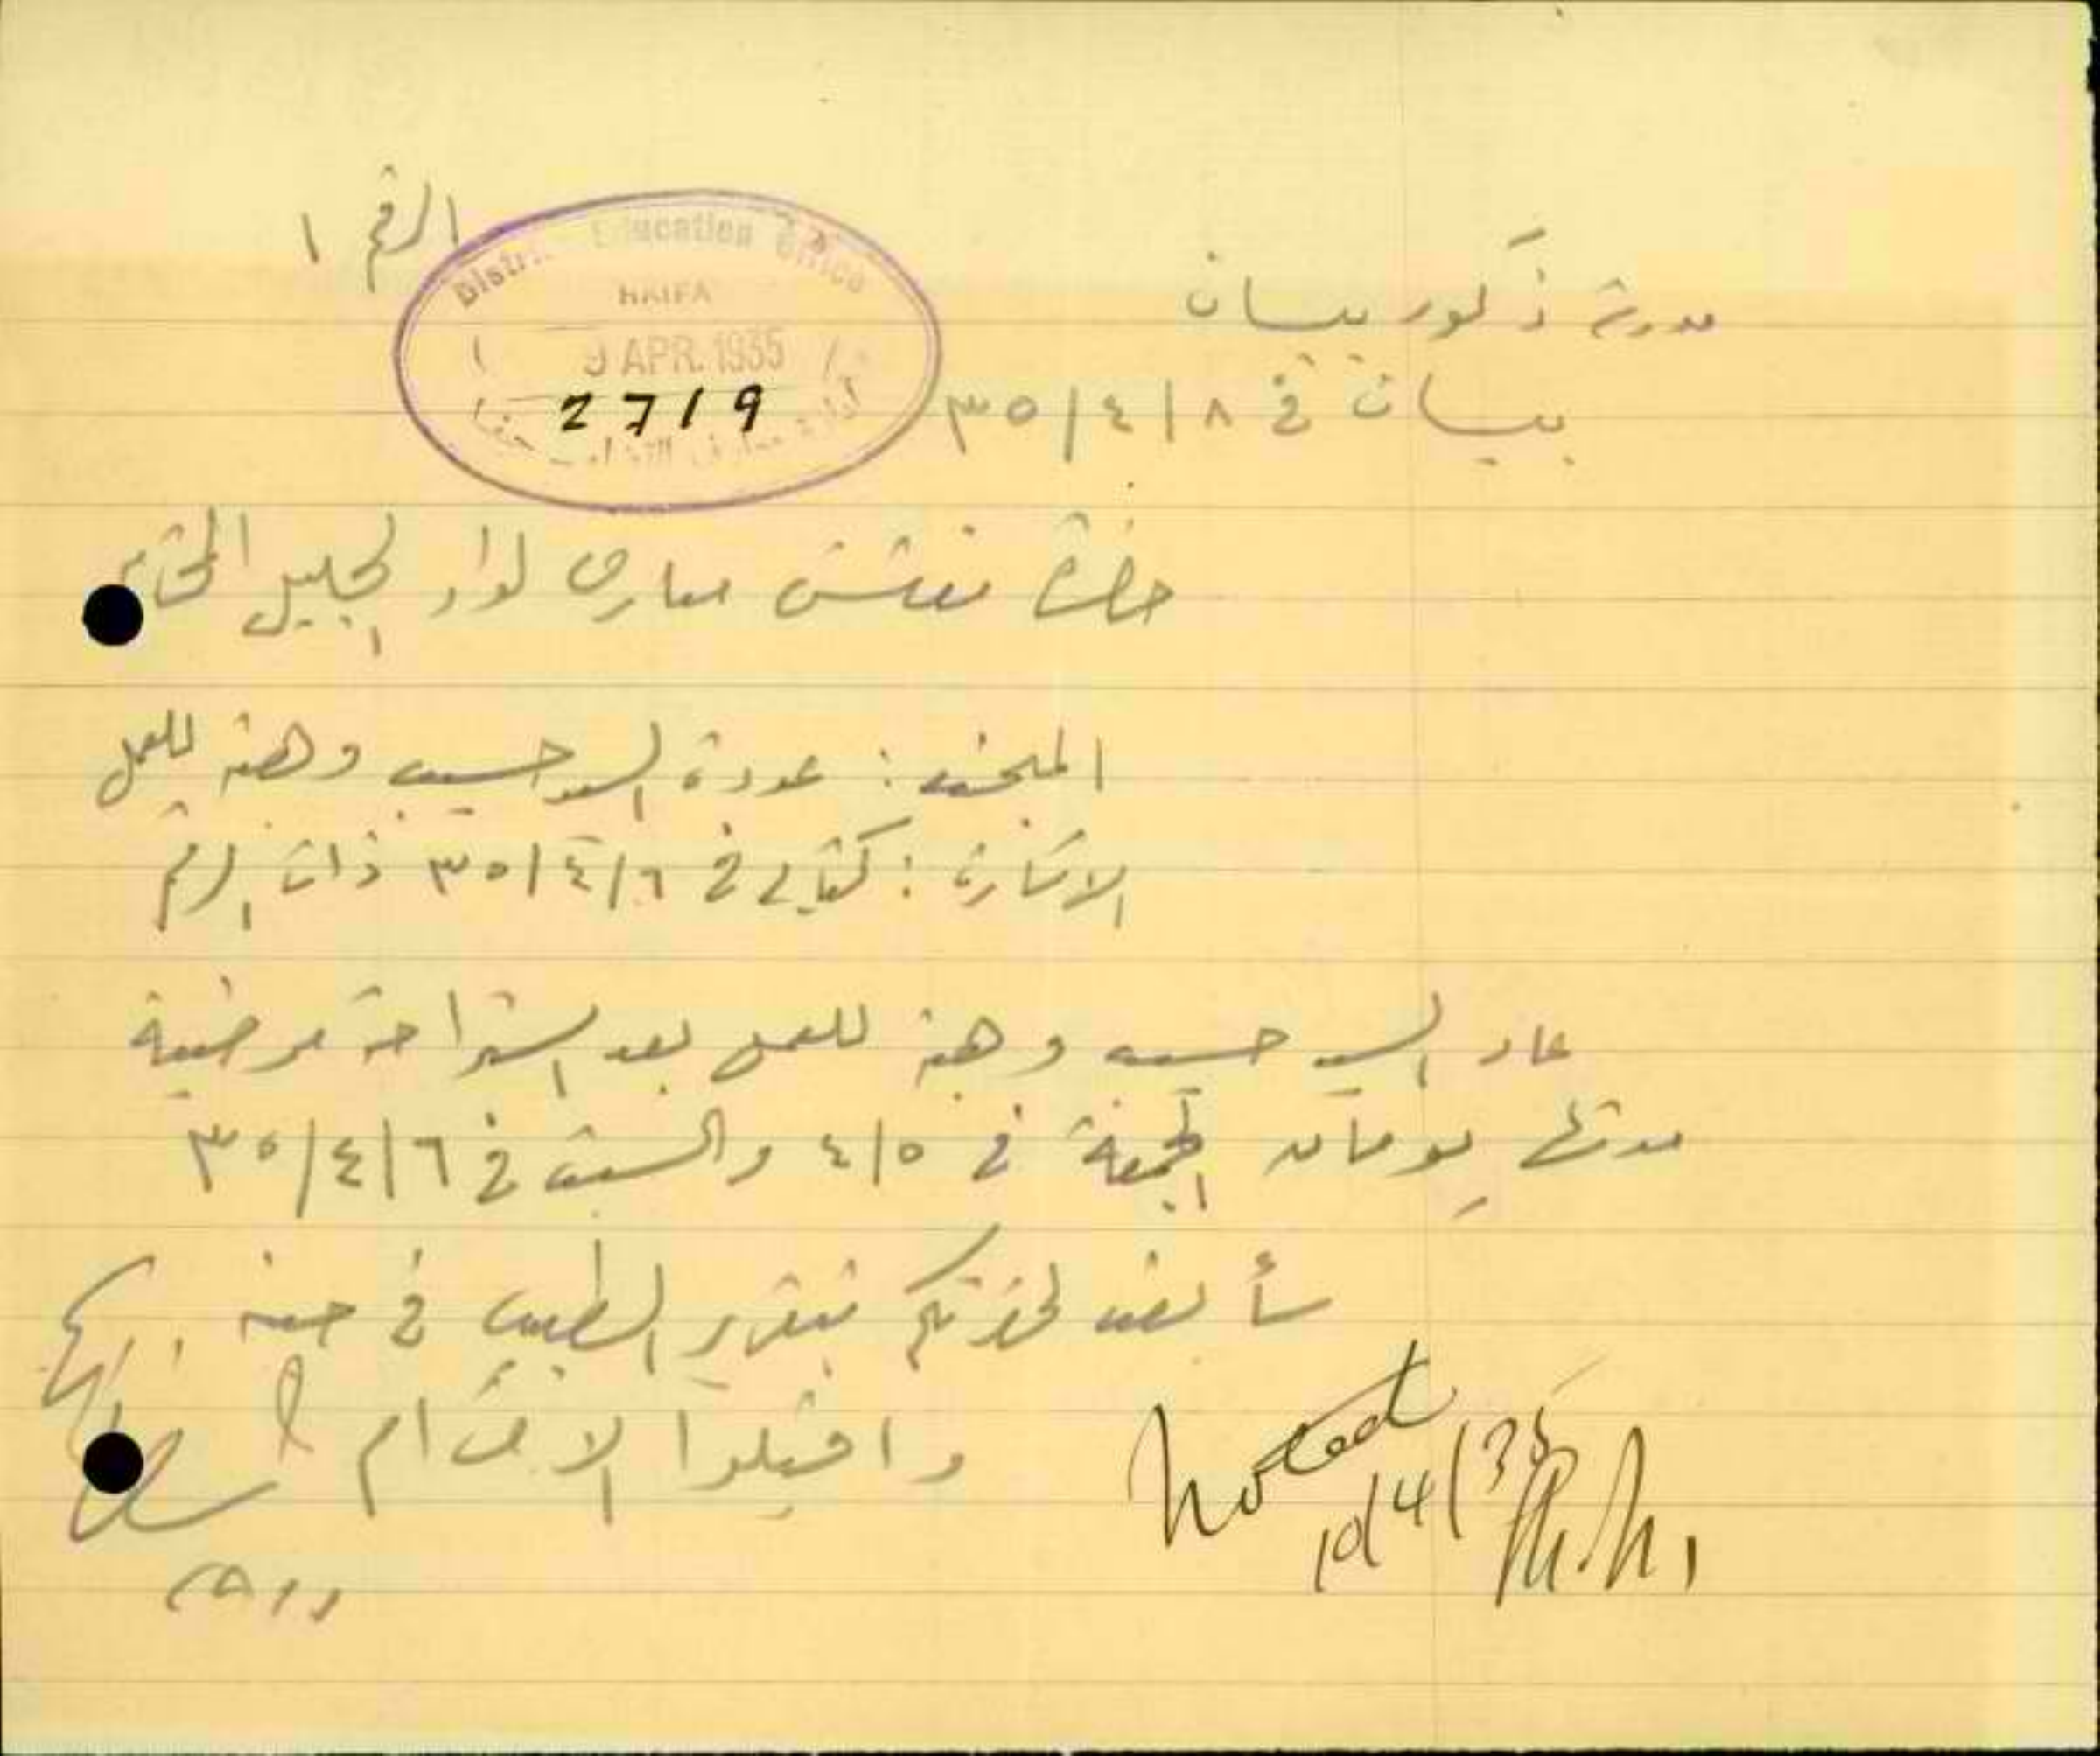 الرقم ١
District Education Office
HAIFA
9 APR. 1935
2719
مدرسة ذكور بيسان
بيسان في ٣٥/٤/٨
حضرة مفتش معارف لواء الجليل المحترم
الملخص : عودة السيد حسيب وهبة للعمل
الاشارة : كتابي في ٣٥/٤/٦ ذات الرقم
عاد السيد حسيب وهبة للعمل بعد استراحة مرضية
مدتها يومان الجمعة في ٤/٥ والسبت في ٣٥/٤/٦
سأبعث لحضرتكم بتقرير الطبيب في حينه .
واقبلوا الاحترام
Noted
10/4/35